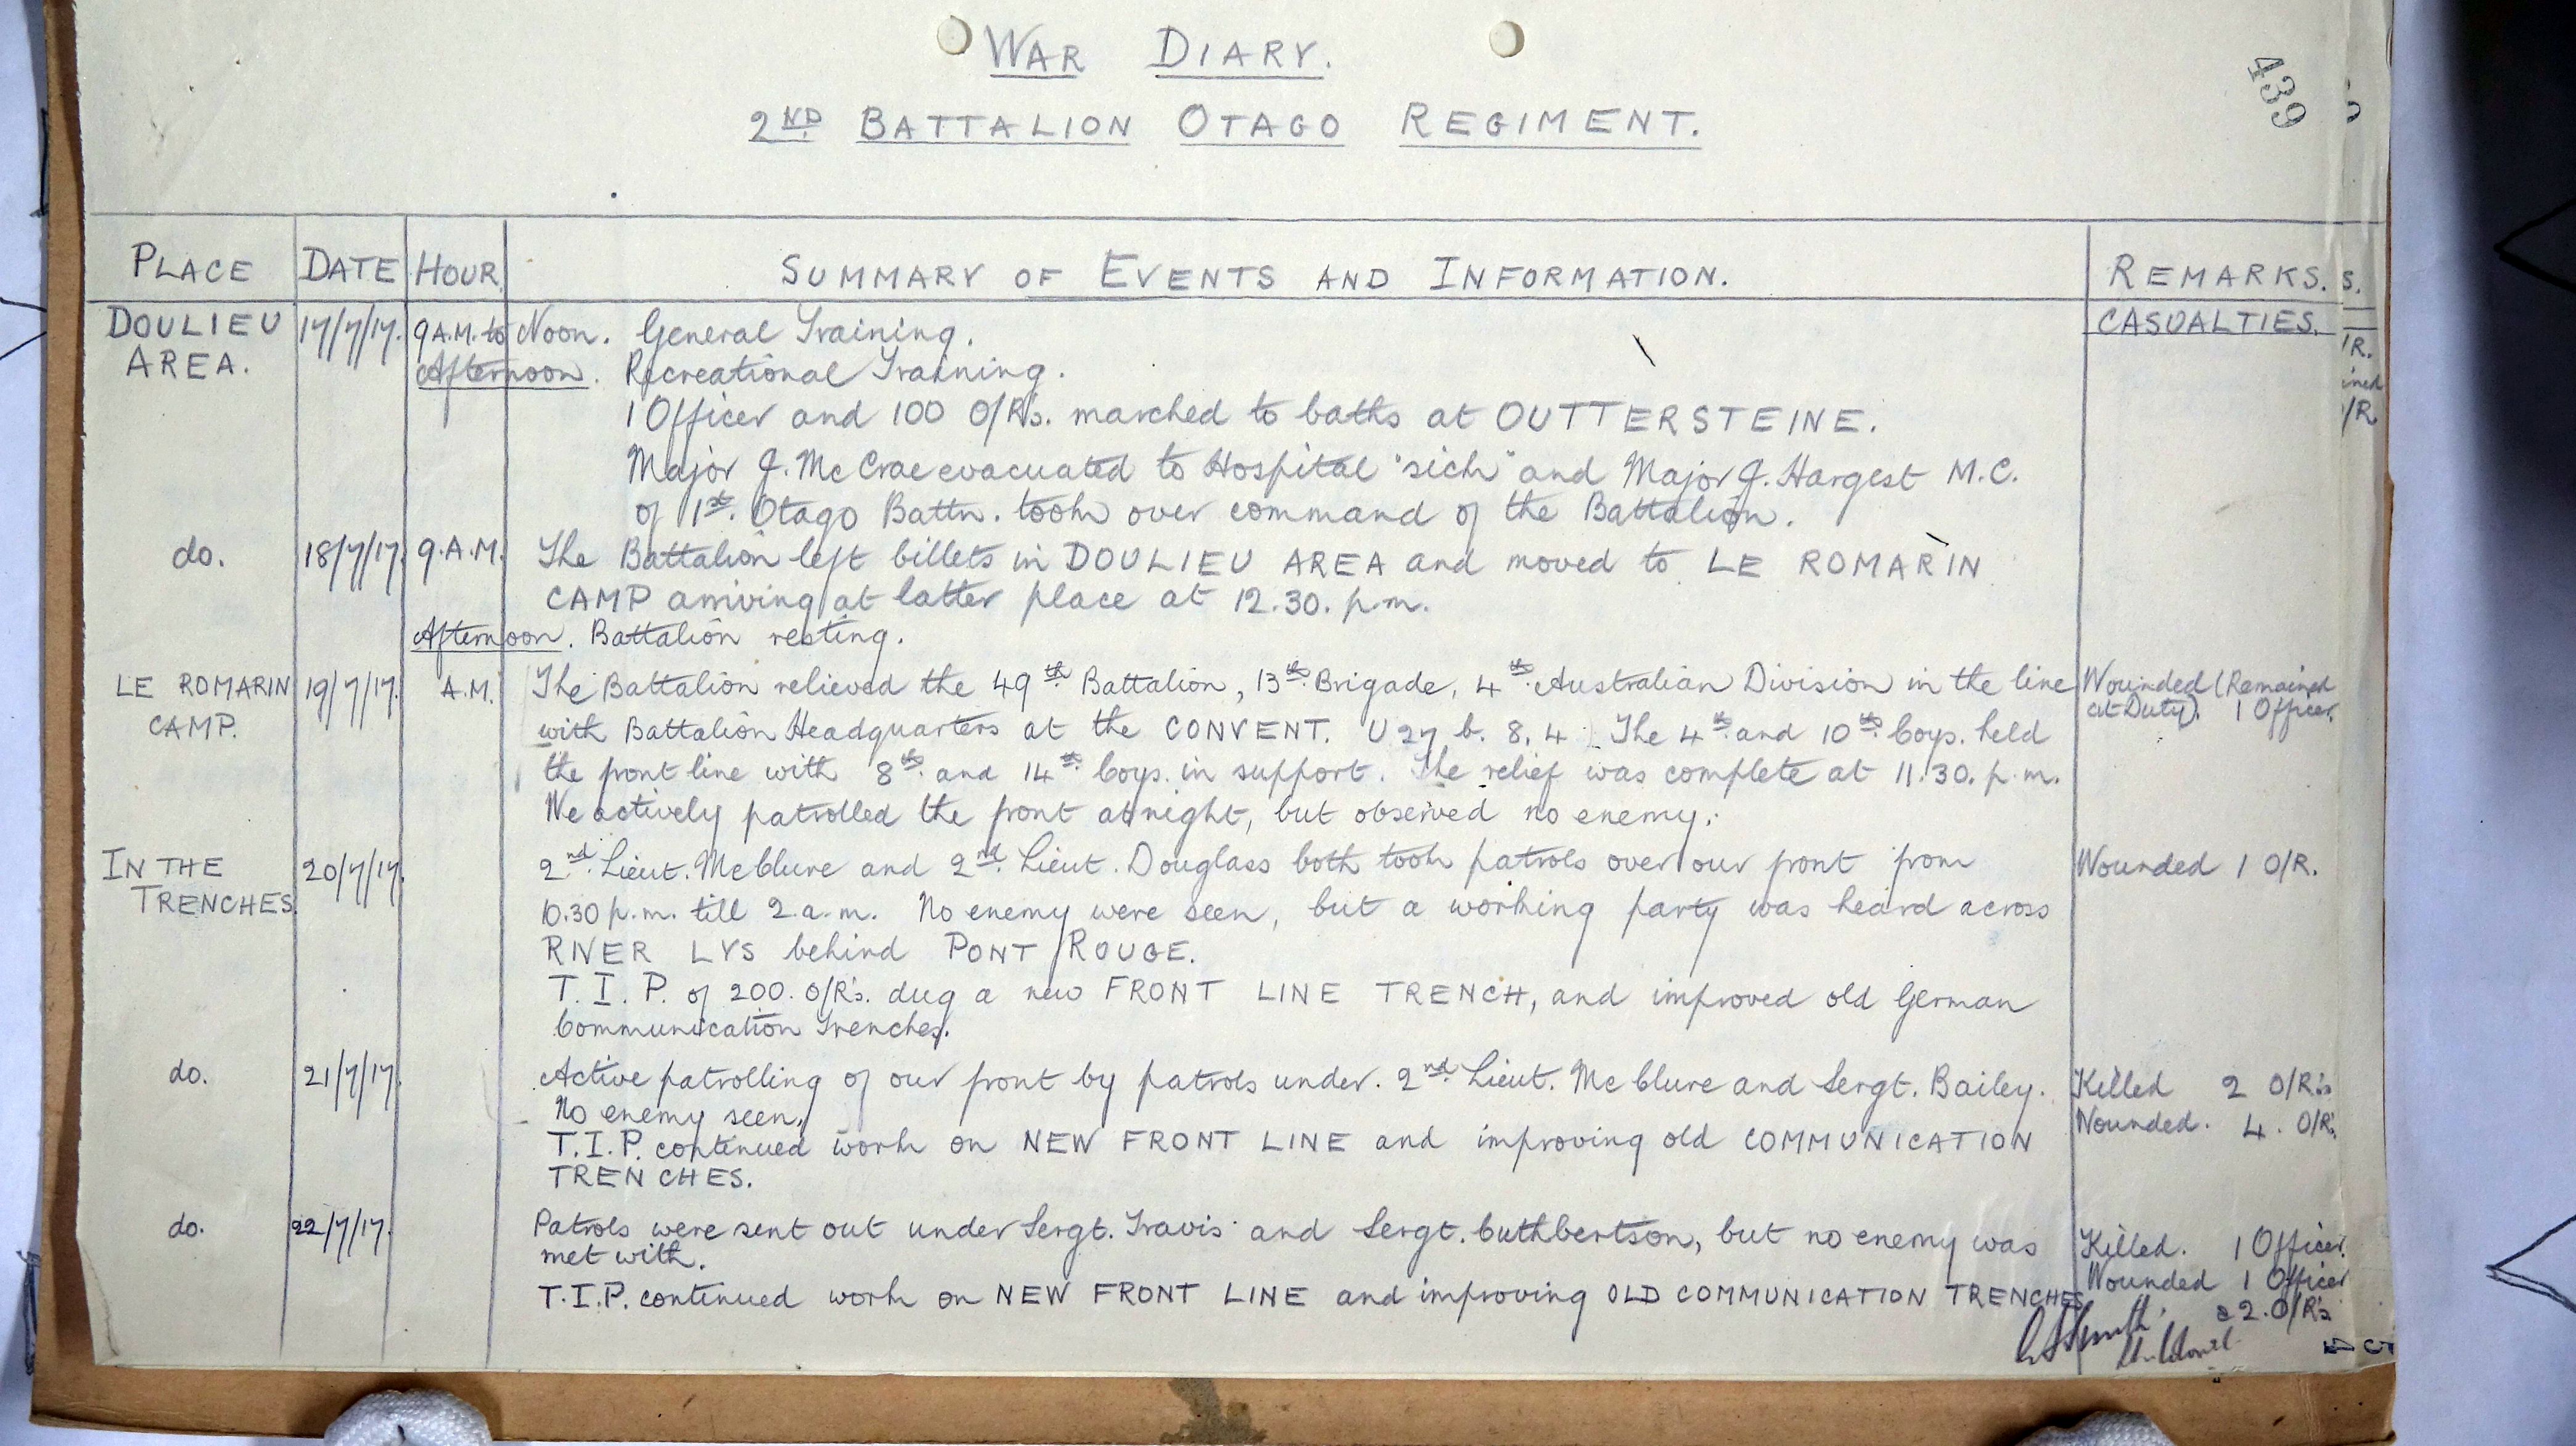 WAR DIARY.
439
2ND BATTALION OTAGO REGIMENT.
PLACE DATE HOUR. SUMMARY OF EVENTS AND INFORMATION. REMARKS. S.
CASUALTIES.
DOULIEU 17/7/17. 9 A.M. to Noon. General Training.
/R.
AREA. Afternoon. Recreational Training.
ined
1 Officer and 100 O/R's. marched to baths at OUTTERSTEINE.
/R.
Major J. McCrae evacuated to Hospital "sick" and Major J. Hargest M.C.
of 1st. Otago Battn. took over command of the Battalion.
do. 18/7/17. 9.A.M. The Battalion left billets in DOULIEU AREA and moved to LE ROMARIN
CAMP arriving at latter place at 12.30. p.m.
Afternoon. Battalion resting.
LE ROMARIN 19/7/17. A.M. The Battalion relieved the 49th Battalion, 13th Brigade, 4th Australian Division in the line Wounded (Remained
CAMP. with Battalion Headquarters at the CONVENT. U 27 b. 8. 4. The 4th and 10th Coys. held at Duty). 1 Officer.
the front line with 8th and 14th Coys. in support. The relief was complete at 11.30. p.m.
We actively patrolled the front at night, but observed no enemy.
IN THE 20/7/17. 2nd Lieut. McClure and 2nd Lieut. Douglass both took patrols over our front from Wounded 1 O/R.
TRENCHES. 10.30 p.m. till 2.a.m. No enemy were seen, but a working party was heard across
RIVER LYS behind PONT ROUGE.
T. I. P. of 200. O/R's. dug a new FRONT LINE TRENCH, and improved old German
Communication Trenches.
do. 21/7/17. Active patrolling of our front by patrols under. 2nd Lieut. McClure and Sergt. Bailey. Killed 2 O/R's
No enemy seen. Wounded. 4. O/R's.
T.I.P. continued work on NEW FRONT LINE and improving old COMMUNICATION
TRENCHES.
do. 22/7/17. Patrols were sent out under Sergt. Travis and Sergt. Cuthbertson, but no enemy was Killed. 1 Officer.
met with. Wounded 1 Officer
T.I.P. continued work on NEW FRONT LINE and improving OLD COMMUNICATION TRENCHES. & 2. O/R's
Smith.